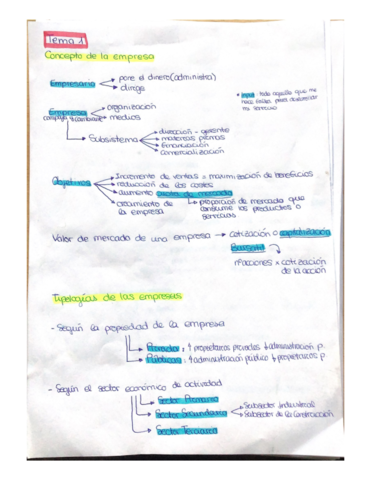 Tema 1
Concepto de la empresa
Empresario
pone el dinero (administra)
dirige
Empresa
organización
medios
Subsistema
dirección - gerente
materias primas
financiación
comercialización
* input: todo aquello que me
hace falta para desarrollar
mi servicio
Objetivos
Incremento de ventas = maximización de beneficios
reducción de los costes
aumento cuota de mercado
proporción de mercado que
consume los productos o
servicios
crecimiento de
la empresa
Valor de mercado de una empresa → cotización o capitalización
Bursátil
nºacciones x cotización
de la acción
Tipologías de las empresas
- Según la propiedad de la empresa
Privadas: ↑ propietarios privados ↓ administración p.
Públicas: ↑ administración pública ↓ propietarios p
- Según el sector económico de actividad
Sector Primario
Sector Secundario
Subsector Industrial
Subsector de la Construcción
Sector Terciario